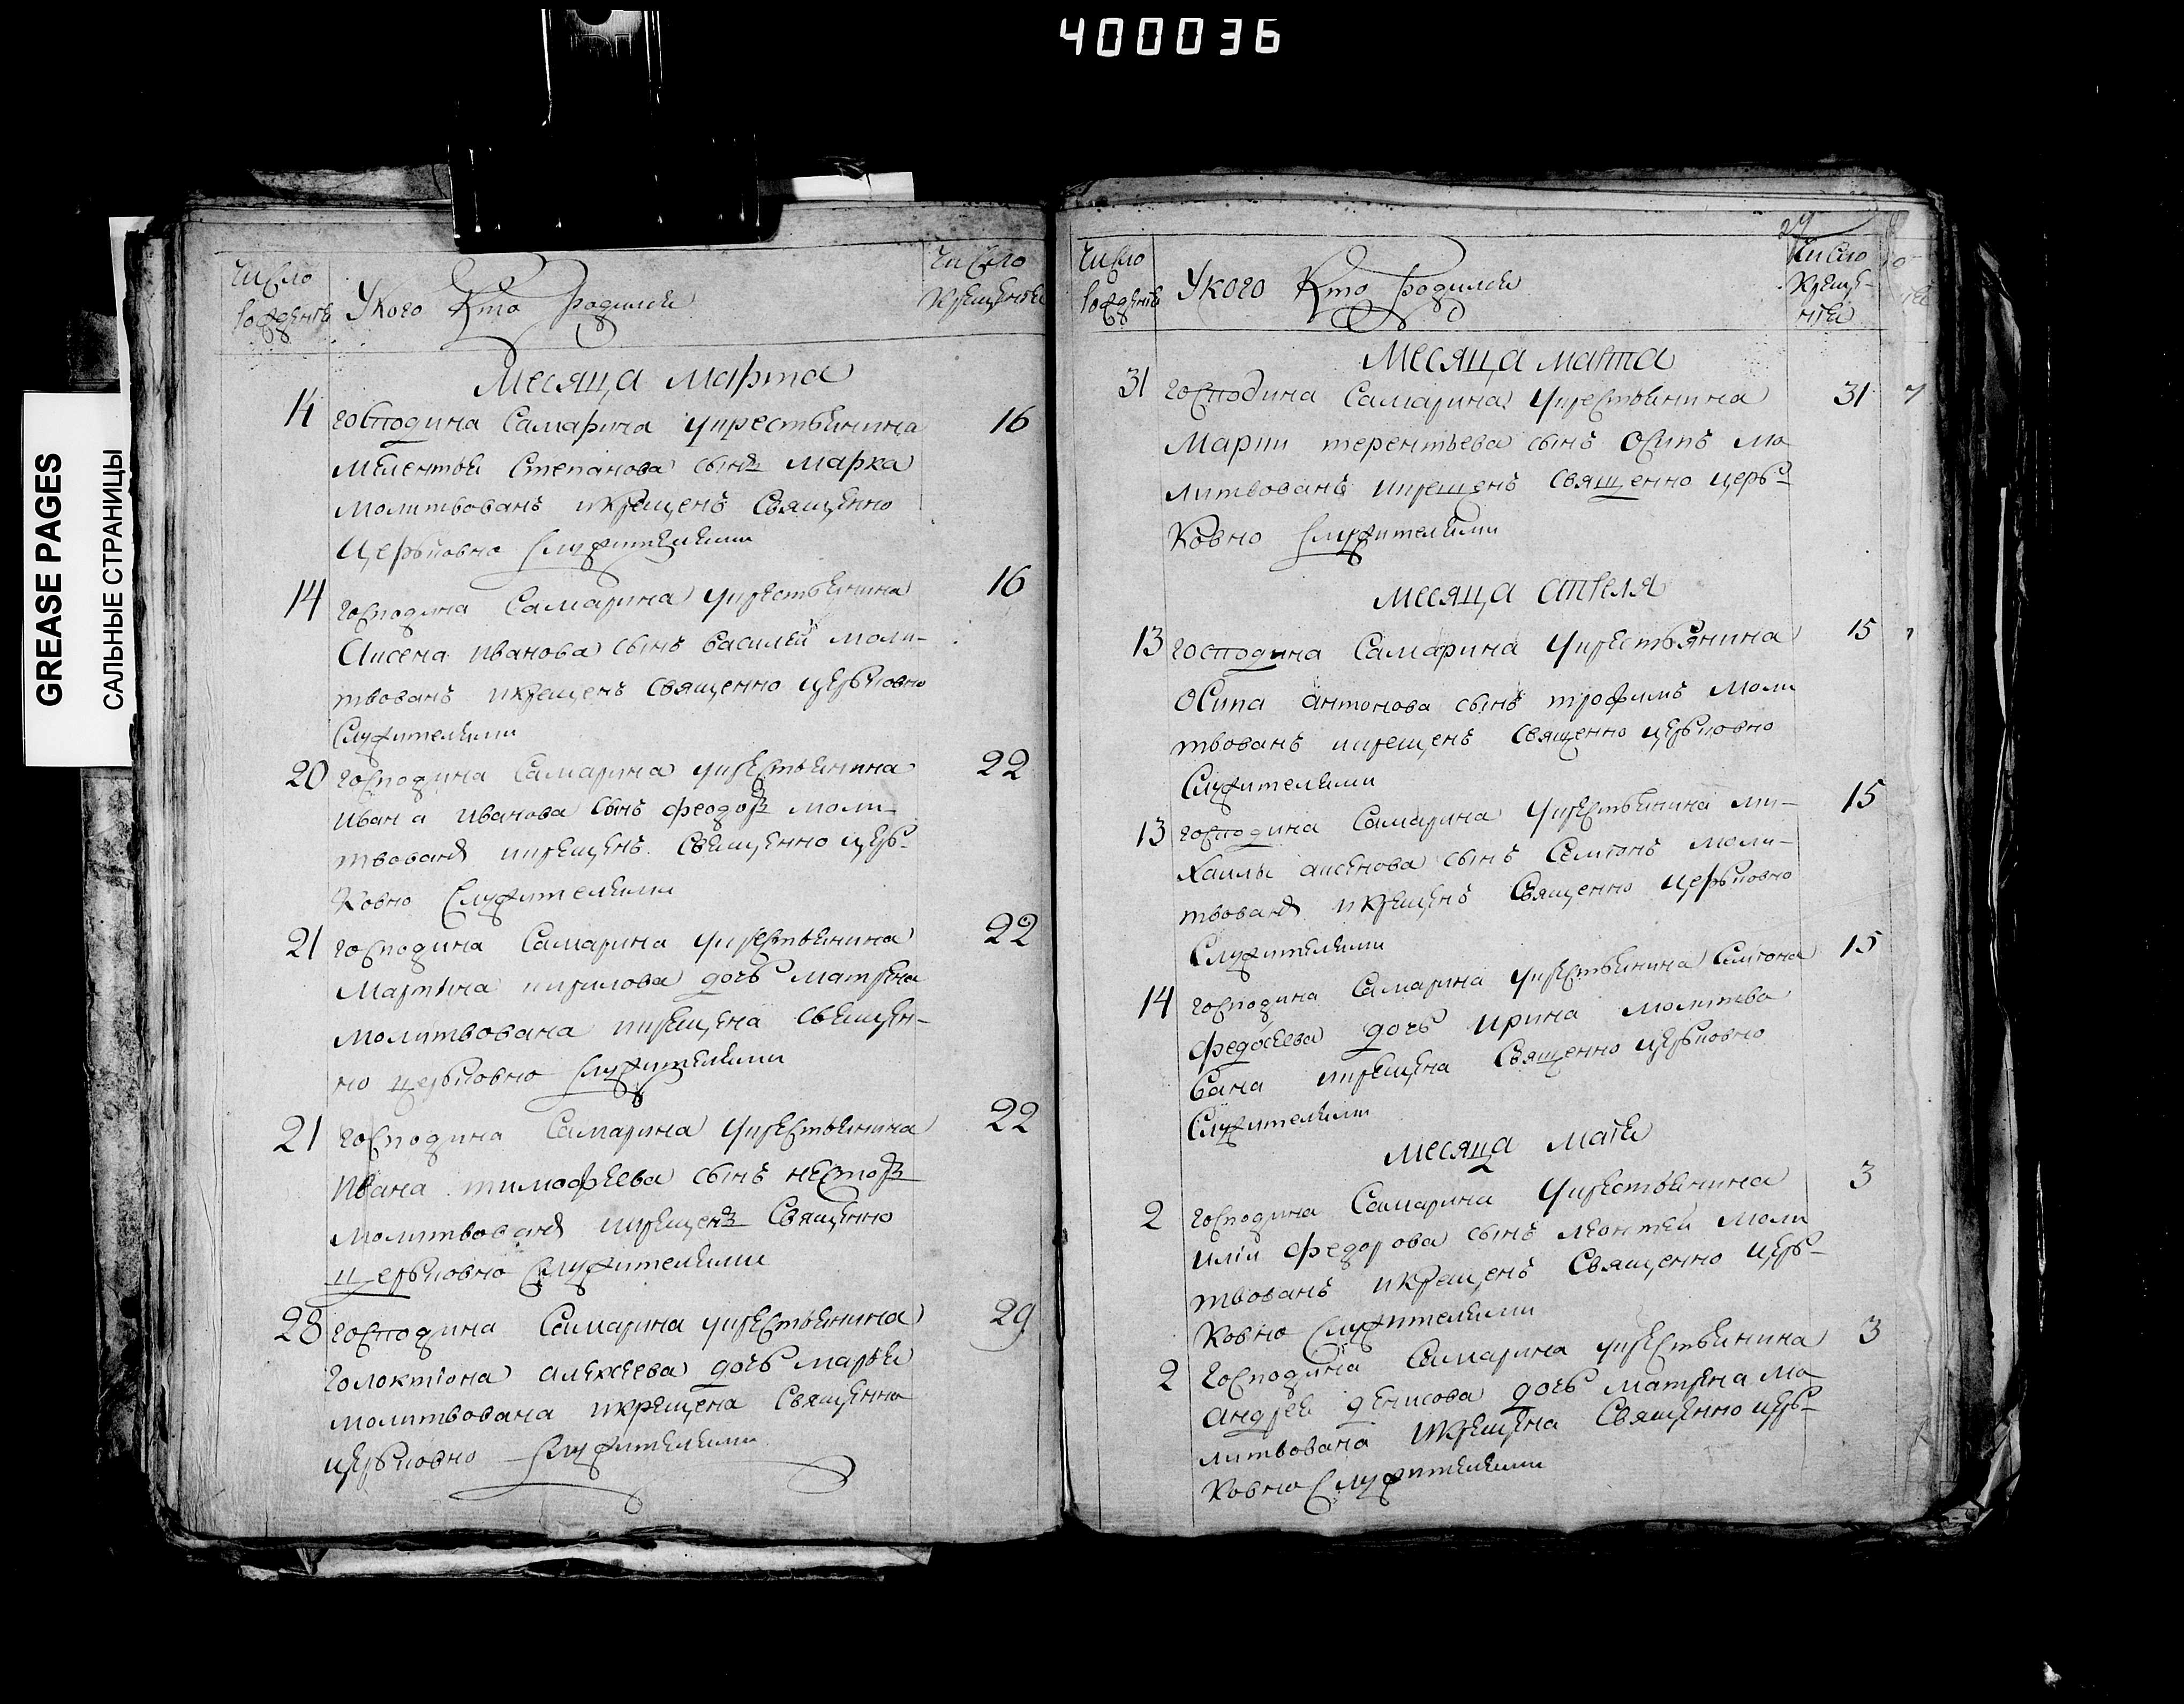 400036
GREASE PAGES
САЛЬНЫЕ СТРАНИЦЫ
Число рожденія
У кого Кто родился
Число крещенія
Месяца марта
14 господина Самарина укрестьянина 16
Мелентья Степанова сынъ Марка
молитвованъ икрещенъ Священно
церьковно служителями
14 господина Самарина укрестьянина 16
Аксена иванова сынъ василей моли-
твованъ икрещенъ священно церьковно
Служителями
20 господина Самарина укрестьянина 22
ивана иванова сынъ феодоръ моли-
твованъ икрещенъ Священно церь-
ковно Служителями
21 господина Самарина укрестьянина 22
Мартина кирилова дочь матрена
молитвована икрещена священ-
но церьковно служителями
21 господина Самарина укрестьянина 22
ивана тимофеева сынъ несторъ
молитвованъ икрещенъ Священно
церьковно Служителями
28 господина Самарина укрестьянина 29
Голоктiона алексеева дочь марья
молитвована икрещена Священно
церьковно Служителями
27
Число рожденія
У кого Кто родился
Число креще-
нія
Месяца марта
31 господина Самарина укрестьянина 31
Марки терентьева сынъ Осипъ мо
литвованъ икрещенъ священно церь-
ковно служителями
месяца апреля
13 господина Самарина укрестьянина 15
Осипа антонова сынъ трофимъ моли
твованъ икрещенъ священно церьковно
Служителями
13 господина Самарина укрестьянина ми- 15
хаилы аксенова сынъ Семіонъ моли-
твованъ икрещенъ Священно церьковно
Служителями
14 господина Самарина укрестьянина Семіона 15
федосеева дочь ирина молитво
вана икрещена Священно церьковно
Служителями
месяца маія
2 господина Самарина укрестьянина 3
иліи федорова сынъ леонтей моли
твованъ икрещенъ Священно церь-
ковно Служителями
2 господина Самарина укрестьянина 3
андрея денисова дочь матрена мо
литвована икрещена Священно церь-
ковно Служителями